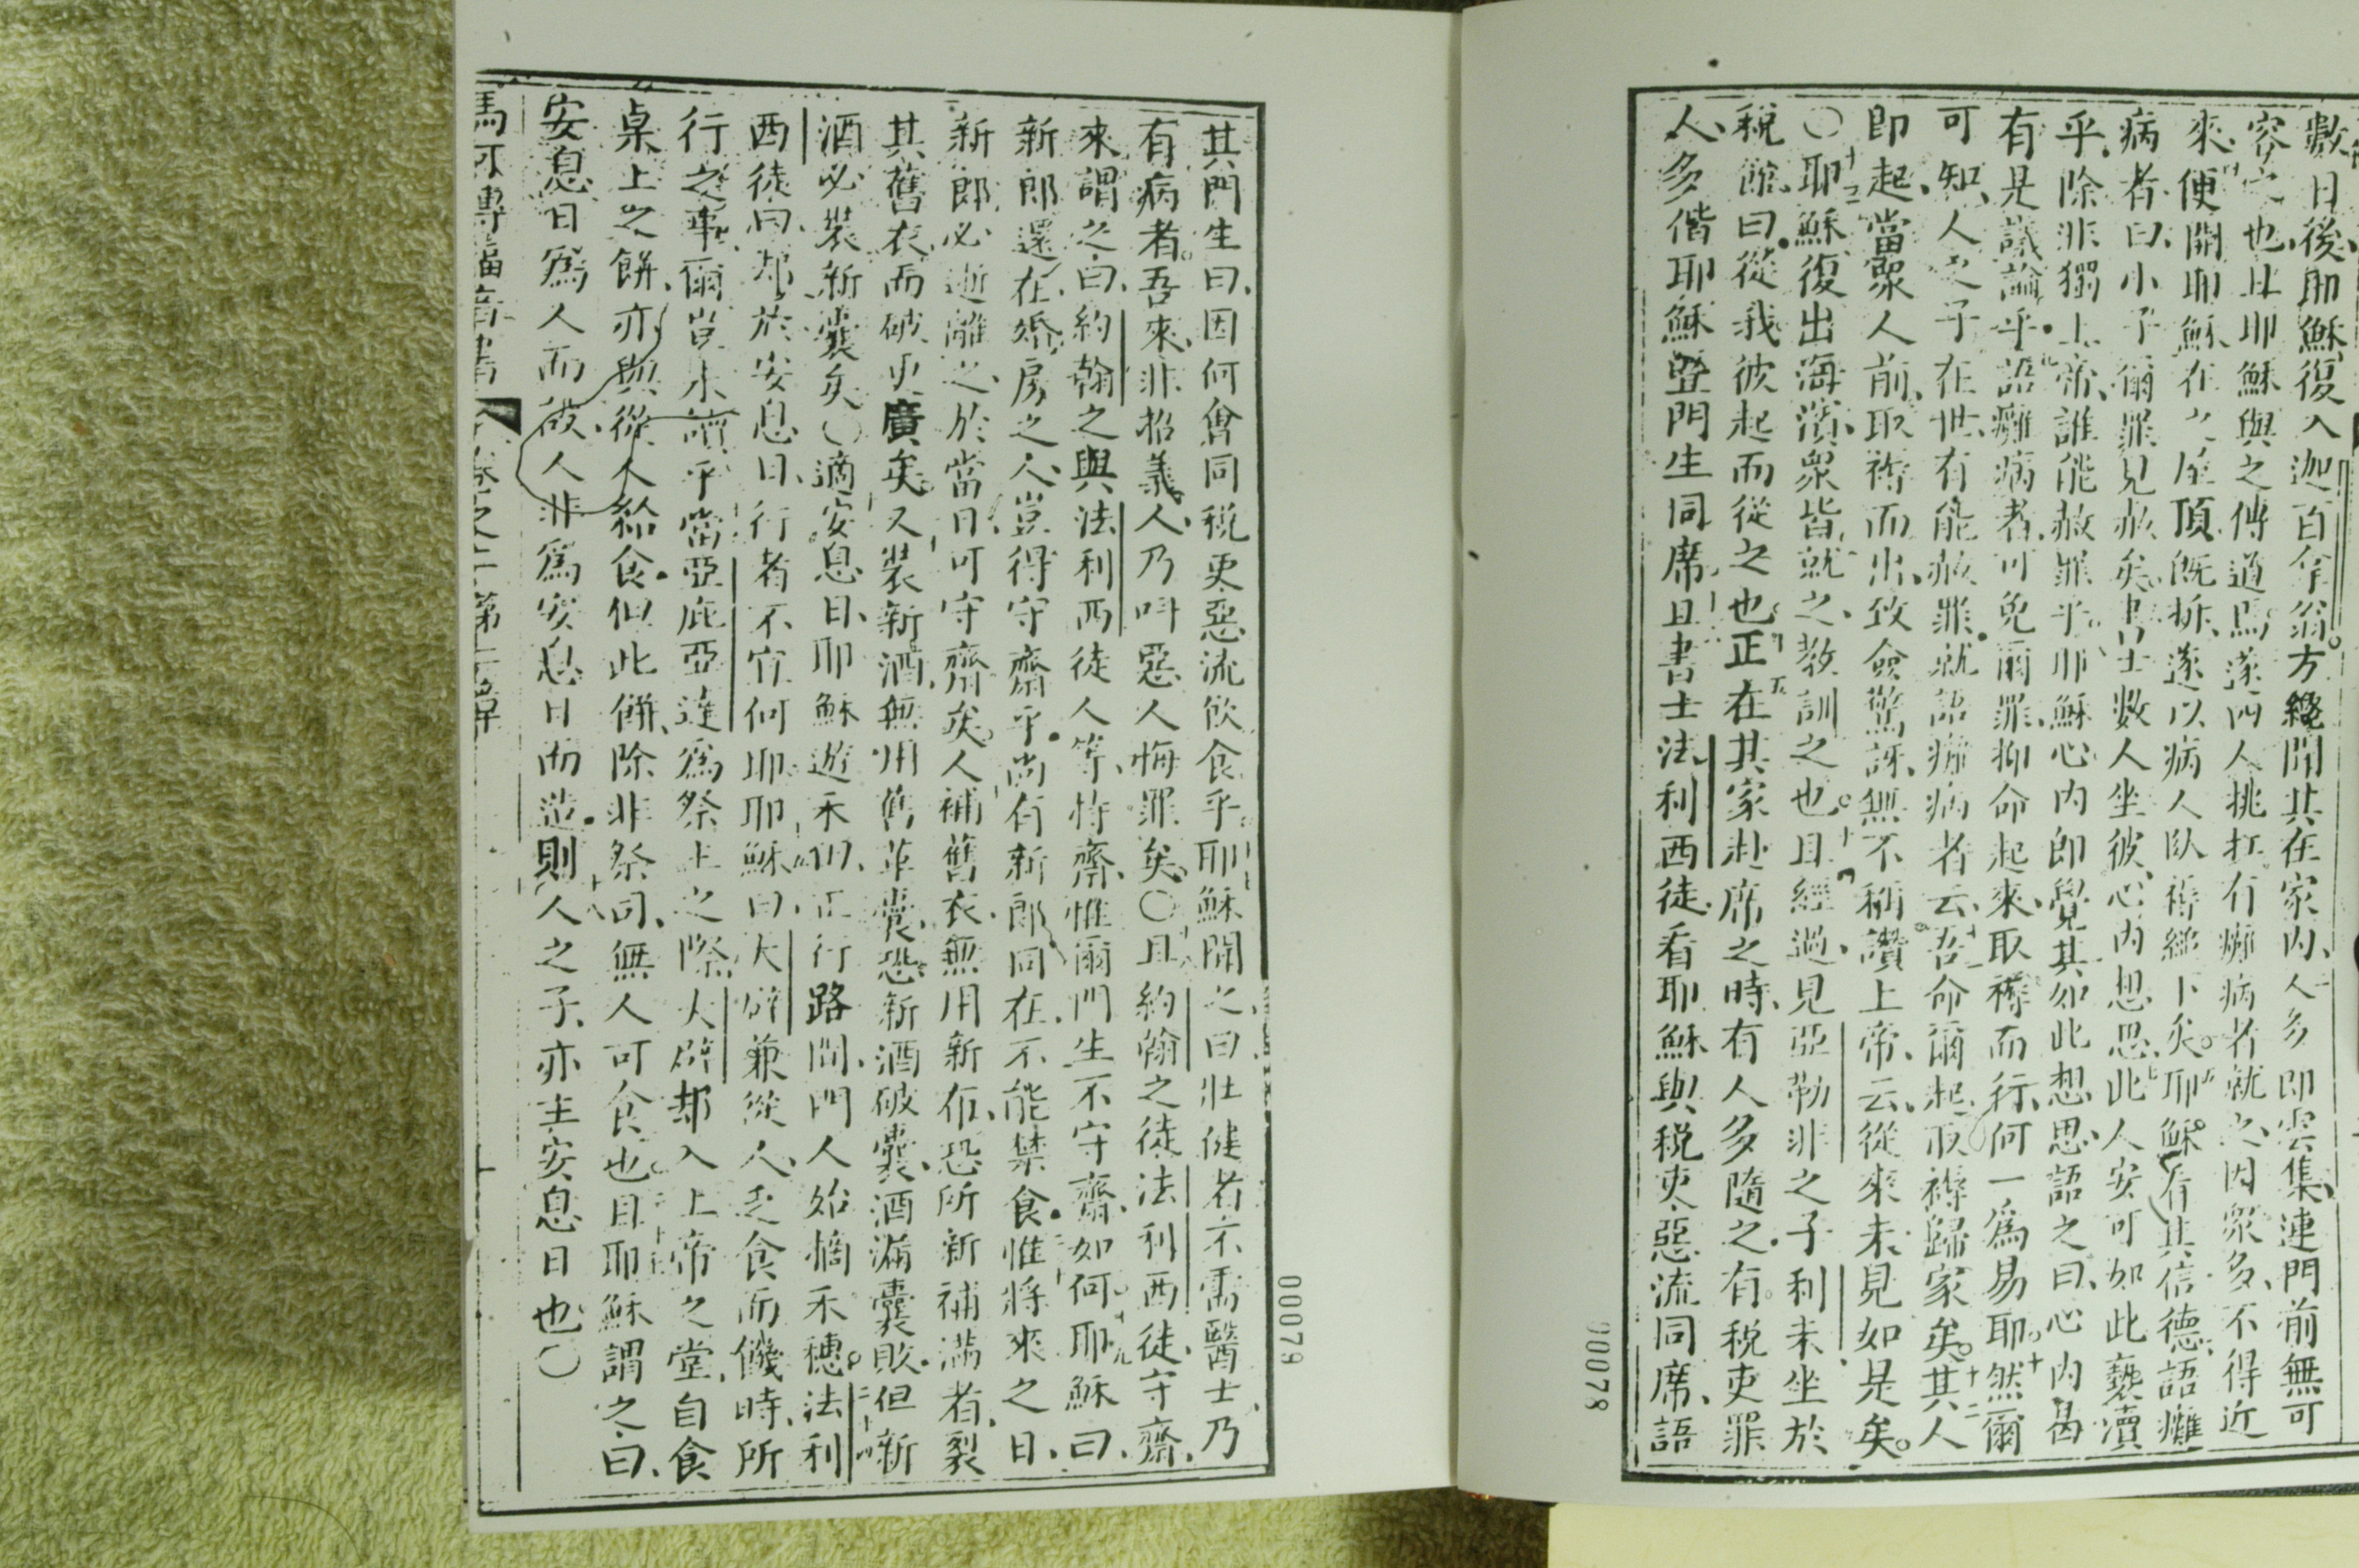 數日後耶穌復入迦百拿翁方纔聞其在家內人多即雲集連門前無可
容之也且耶穌與之傳道焉遂四人挑扛有癱病者就之因眾多不得近
來便開耶穌在之屋頂既拆遂以病人臥褥縋下矣耶穌看其信德語癱
病者曰小子爾罪見赦矣書士數人坐彼心內想思此人安可如此褻瀆
乎除非獨上帝誰能赦罪乎耶穌心內即覺其如此想思語之曰心內曷
有是議論乎語癱病者可免爾罪抑命起來取褥而行何一為易耶然爾
可知人之子在世有能赦罪就語癱病者云吾命爾起取褥歸家矣其人
即起當眾人前取褥而出致僉驚訝無不稱讚上帝云從來未見如是矣
〇耶穌復出海濱眾皆就之教訓之也且經過見亞勒非之子利未坐於
稅館曰從我彼起而從之也正在其家赴席之時有人多隨之有稅吏罪
人多偕耶穌暨門生同席且書士法利西徒看耶穌與稅吏惡流同席語
00078
其門生曰因何會同稅吏惡流飲食乎耶穌聞之曰壯健者不需醫士乃
有病者吾來非招義人乃叫惡人悔罪矣〇且約翰之徒法利西徒守齋
來謂之曰約翰之與法利西徒人等恃齋惟爾門生不守齋如何耶穌曰
新郎還在婚房之人豈得守齋乎尚有新郎同在不能禁食惟將來之日
新郎必逝離之於當日可守齋矣人補舊衣無用新布恐所新補滿者裂
其舊衣而破更廣矣又裝新酒無用舊革囊恐新酒破囊酒滿囊敗但新
酒必裝新囊矣〇適安息日耶穌遊禾田正行路間門人始摘禾穗法利
西徒曰却於安息日行者不宜何耶耶穌曰大辟兼從人乏食而饑時所
行之事爾豈未讀乎當亞庇亞達為祭上之際大辟却入上帝之堂自食
桌上之餅亦與從人給食但此餅除非祭司無人可食也且耶穌謂之曰
安息日為人而設人非為安息日而造則人之子亦主安息日也〇
馬可傳福音書 卷之二 第二章
十
00079